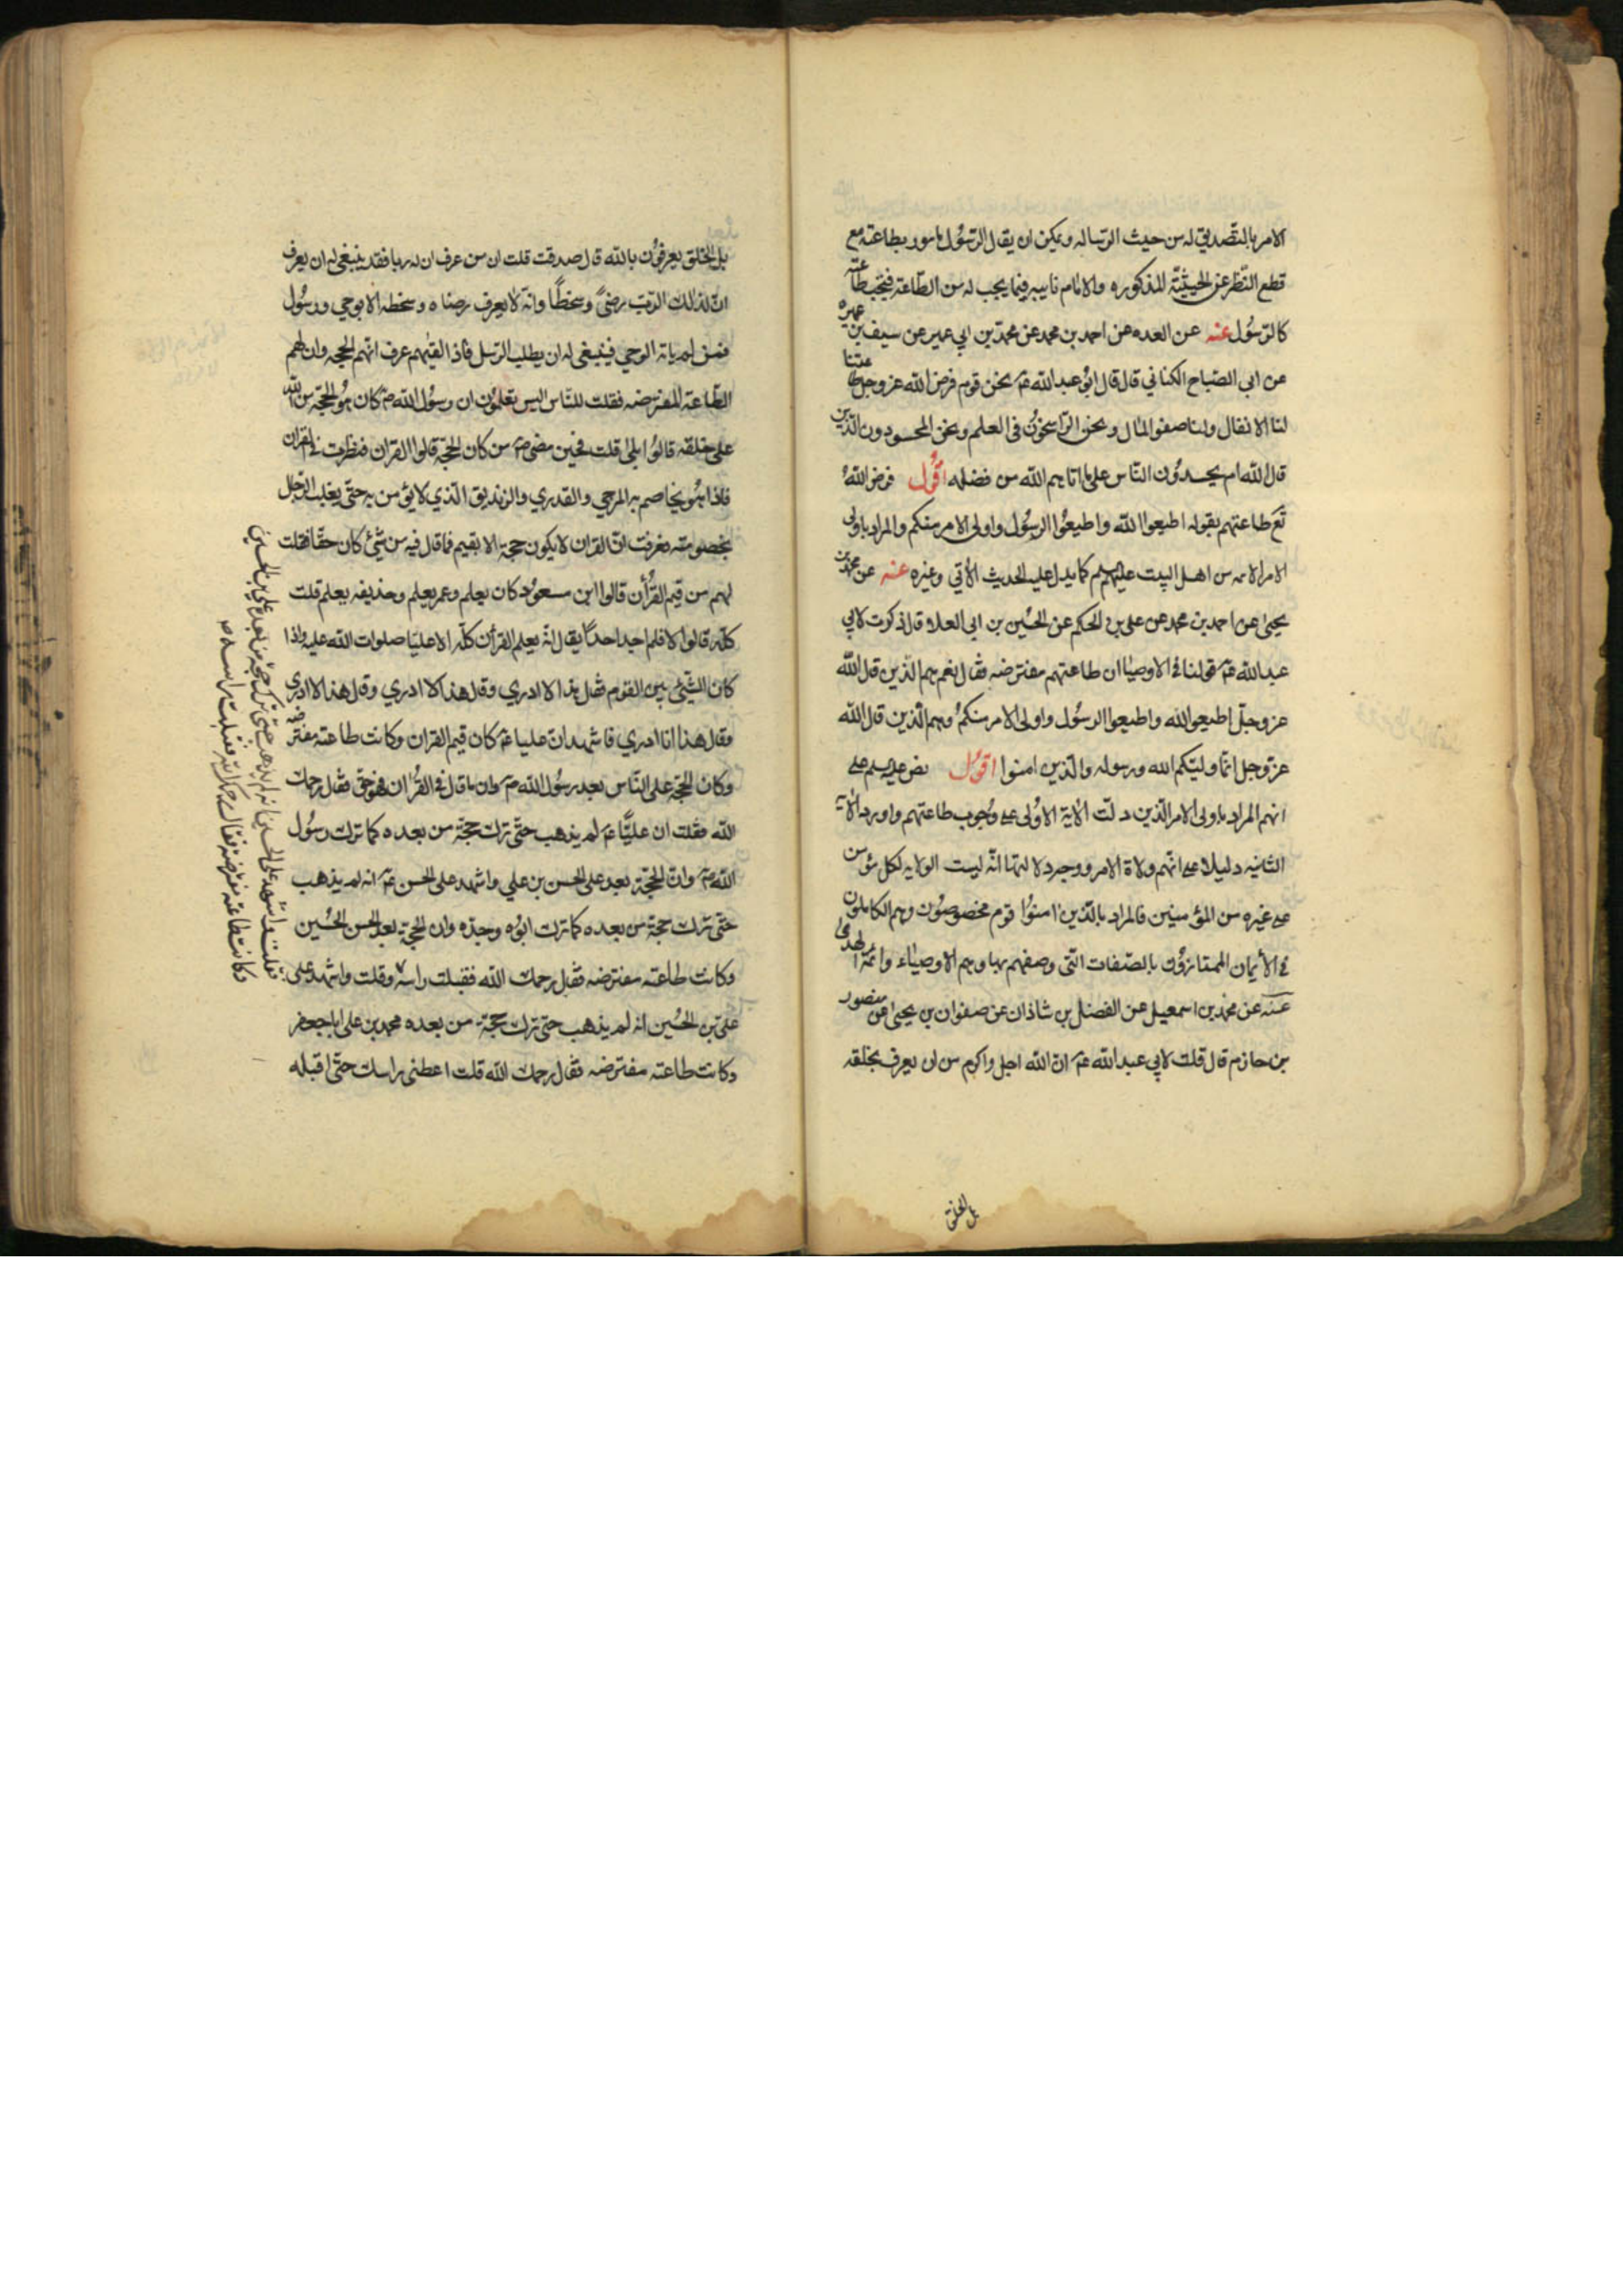 الامر بالتصديق له من حيث الرساله ويمكن ان يقال الرسول مامور بطاعته مع
قطع النظر عن الحيثيّة المذكوره والامام نايبه فيما يجب له من الطاعة فتجب طاعته
كالرّسُول عنه عن العده عن احمد بن محمد عن محمد بن ابي عمير عن سيف بن عميره
عن ابي الصّباح الكناني قال قال ابُو عبد الله عم نحن قوم فرض الله عز وجل طاعتنا
لنا الانفال ولنا صفو المال ونحن الرّاسخوُن في العلم ونحن المحسودون الّذين
قال الله ام يحسدُون النّاس على ما اتاهم الله من فضله اقُول فرض اللهُ
تع طاعتهم بقوله اطيعوا الله واطيعُوا الرسُول واولى الامر منكم والمراد باولى
الامر الائمه من اهل البيت عليهم كما يدل عليه الحديث الاتي وغيره عنه عن محمد بن
يحيى عن احمد بن محمد عن على بن الحكم عن الحُسين بن ابي العلا قال ذكرت لابي
عبد الله عم قولنا في الاوصيا ان طاعتهم مفترضه فقال نعم هم الذين قال الله
عز وجلّ اطيعوا الله واطيعوا الرسُول واولى الامر منكمُ وهم الّذين قال الله
عز وجل انّما وليّكم الله ورسوله والّذين امنوا اقوُل نص على
انهم المراد باولى الامر الّذين دلت الاية الاوُلى على وُجوب طاعتهم واورد الاية
الثانيه دليلا على انّهم ولاة الامر ووجه دلالتها انّه ليست الولايه لكل مؤمن
على غيره من المؤمنين فالمراد بالذين امنوُا قوم مخصوصوُن وهم الكاملون
في الأيمان الممتازوُن بالصّفات التّى وصفهم بها وهم الاوصياء وائمّة الهدى
عنه عن محمد بن اسمعيل عن الفضل بن شاذان عن صفوان بن يحيى عن منصور
بن حازم قال قلت لابي عبد الله عم ان الله اجل واكرم من ان يعرف بخلقه
بل الخلق
بل الخلق يعرفوُن بالله قال صدقت قلت ان من عرف ان له ربا فقد ينبغى له ان يعرف
انّ لذلك الرّب رضىً وسخطًا وانّه لا يعرف رضاه وسخطه الا بوحي ورسُول
فمن لم ياته الوحي فينبغى له ان يطلب الرّسل فاذا لقيهم عرف انّهم الحجه وان لهم
الطّاعة المفترضه فقلت للنّاس اليس تعلمُون ان رسُول الله ص كان هُو الحجّة من الله
على خلقه قالوُا بلى قلت فحين مضى ص من كان الحجّة قالوا القران فنظرت في القران
فاذا هُو يخاصم به المرجي والقدري والزنديق الّذي لا يؤمن به حتّى يغلب الرّجال
بخصومته فعرفت انّ القران لا يكون حجة الا بقيم فما قال فيه من شيئ كان حقّا فقلت
لهم من قيم القُرأن قالوا ابن مسعوُد كان يعلم وعمر يعلم وحذيفه يعلم قلت
كلّه قالوا لا فلم اجد احداً يقال انّه يعلم القرآن كلّه الا عليّا صلوات الله عليه واذا
كان الشّئ بين القوم فقال هذا لا ادري وقال هذا لا ادري وقال هذا لا ادري
وقال هذا انا ادري فاشهد انّ عليا عم كان قيم القران وكانت طاعته مفترضه
وكان الحجّة على النّاس بعد رسُول الله ص وان ما قال في القُران فهو حق فقال رحمك
الله فقلت ان عليًّا عم لم يذهب حتّى ترك حجّة من بعده كما ترك رسُول
الله ص وانّ الحجّة بعد على الحسن بن علي واشهد على الحسن عم انه لم يذهب
حتّى ترك حجّة من بعده كما ترك ابوُه وجدّه وان الحجّة بعد الحسن الحُسين
وكانت طاعته مفترضه فقال رحمك الله فقبلت راسه وقلت واشهد على
على بن الحُسين انه لم يذهب حتّى ترك حجّة من بعده محمد بن على ابا جعفر
وكانت طاعته مفترضه فقال رحمك الله قلت اعطنى راسك حتّى اقبله
فقلت واشهد على الحسين انه لم يذهب حتى ترك حجة من بعده علي بن الحسين
وكانت طاعته مفترضة فقال رحمك الله فقبلت راسه